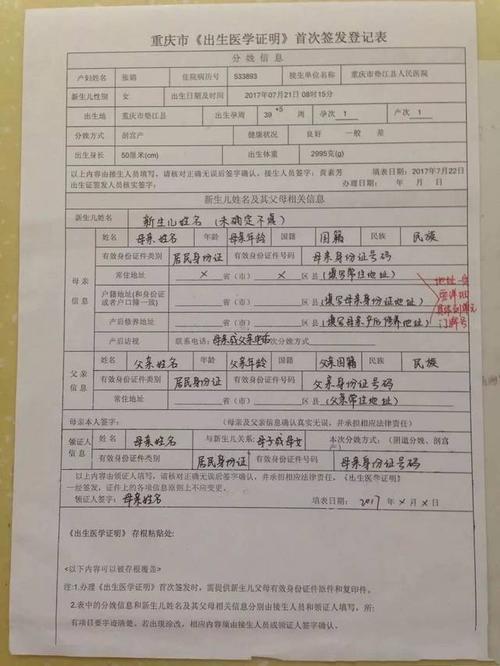 重庆市《出生医学证明》首次签发登记表
分娩信息
产妇姓名 张璐 住院病历号 533893 接生单位名称 重庆市垫江县人民医院
新生儿性别 女 出生日期及时间 2017年07月21日 08时15分
出生地 重庆市垫江县 出生孕周 39 +5 周 孕次 1 产次 1
分娩方式 剖宫产 健康状况 良好 一般 差
出生身长 50厘米(cm) 出生体重 2995克(g)
以上内容由接生人员填写,请核对正确无误后签字确认。接生人员签字:黄素芳 填表日期:2017年7月22日
出生证签发人员核实签字: 办理日期: 年 月 日
新生儿姓名及其父母相关信息
新生儿姓名 新生儿姓名(未确定不填)
母亲信息
姓名 母亲姓名 年龄 母亲年龄 国籍 国籍 民族 民族
有效身份证件类别 居民身份证 有效身份证件号码 母亲身份证号码
常住地址 × 省(市) × 区县(填写常住地址)
户籍地址(和身份证或者户口簿一致) 省(市) 区县(填写母亲身份证地址)
产后修养地址 省(市) 区县(填写母亲产后修养地址)
地址一定
要详细
具体到单元
门牌号
产后访视 联系电话:母亲或父亲电话 次分娩方式:
父亲信息
姓名 父亲姓名 年龄 父亲年龄 国籍 父亲国籍 民族 民族
有效身份证件类别 居民身份证 有效身份证件号码 父亲身份证号码
常住地址 省(市) 区县(父亲常住地址)
母亲本人签字: (母亲及父亲信息确认真实无误,并承担相应法律责任)
领证人信息
姓名 母亲姓名 与新生儿关系:母子或母女 本次分娩方式:(阴道分娩、剖宫产)
有效身份证件类别 居民身份证 有效身份证件号码 母亲身份证号码
以上内容由领证人填写,请核对正确无误后签字确认,并承担相应法律责任。《出生医学证明》
一经签发,证件上的各项信息原则上不应变更。
领证人签字:母亲姓名 填表日期:2017年×月×日
《出生医学证明》存根粘贴处:
<以下内容可以被存根覆盖>
注:1.办理《出生医学证明》首次签发时,需提供新生儿父母有效身份证件原件和复印件。
2.表中的分娩信息和新生儿姓名及其父母相关信息分别由接生人员和领证人填写,所
有项目要字迹清楚。若出现涂改,相应内容须由接生人员或领证人签字确认。